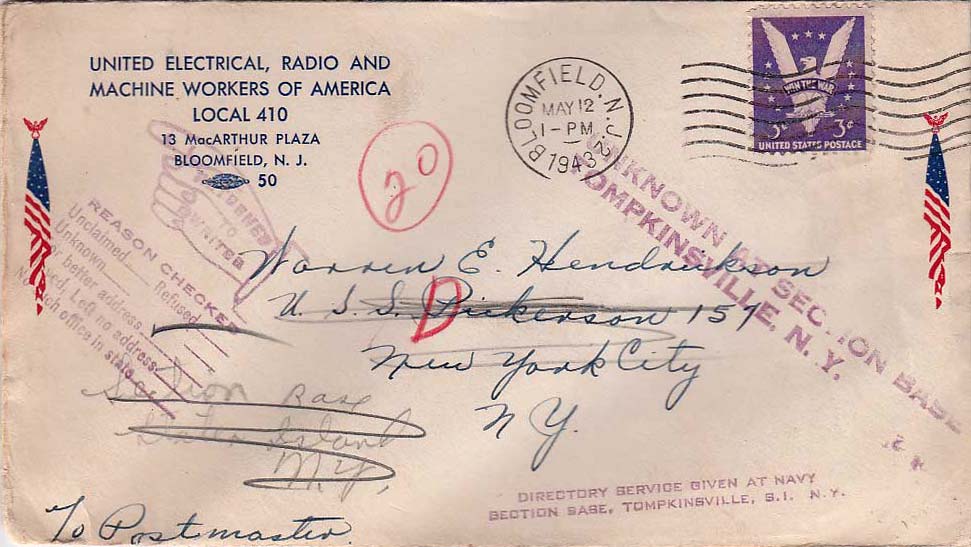 UNITED ELECTRICAL, RADIO AND
MACHINE WORKERS OF AMERICA
LOCAL 410
13 MacARTHUR PLAZA
BLOOMFIELD, N. J.
50
BLOOMFIELD, N.J. 2
MAY 12
1-PM
1943
WIN THE WAR
3¢ 3¢
UNITED STATES POSTAGE
20
UNKNOWN AT SECTION BASE
TOMPKINSVILLE, N. Y.
TO
WRITER
REASON CHECKED
Unclaimed Refused
Unknown
better address
Left no address
No such office in state
Warren E. Hendrickson
U. S. S. Dickerson 157
D
New York City
N Y.
Section Base
Staten Island
N.Y.
DIRECTORY SERVICE GIVEN AT NAVY
SECTION BASE, TOMPKINSVILLE, S.I. N.Y.
To Postmaster